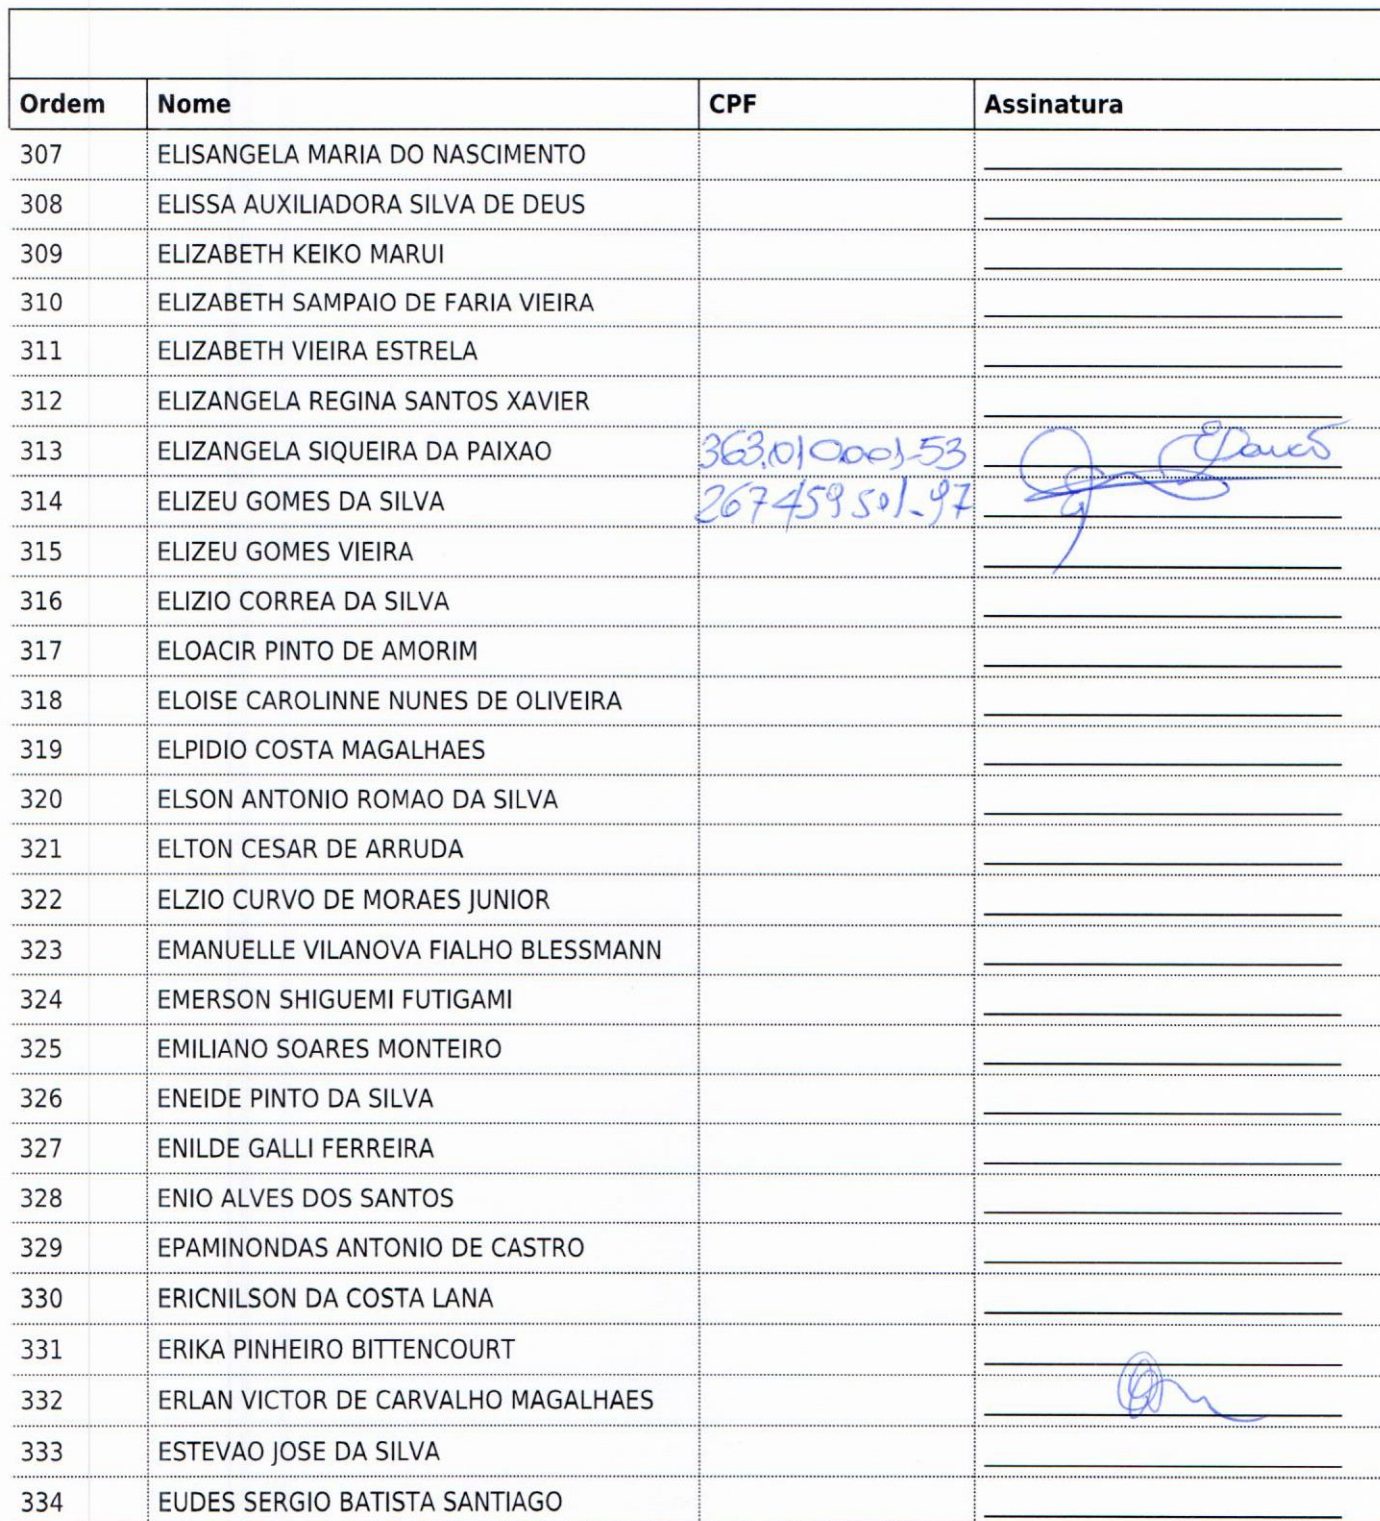 Ordem Nome CPF Assinatura
307 ELISANGELA MARIA DO NASCIMENTO
308 ELISSA AUXILIADORA SILVA DE DEUS
309 ELIZABETH KEIKO MARUI
310 ELIZABETH SAMPAIO DE FARIA VIEIRA
311 ELIZABETH VIEIRA ESTRELA
312 ELIZANGELA REGINA SANTOS XAVIER
313 ELIZANGELA SIQUEIRA DA PAIXAO 363.010.001-53
314 ELIZEU GOMES DA SILVA 267459501-97
315 ELIZEU GOMES VIEIRA
316 ELIZIO CORREA DA SILVA
317 ELOACIR PINTO DE AMORIM
318 ELOISE CAROLINNE NUNES DE OLIVEIRA
319 ELPIDIO COSTA MAGALHAES
320 ELSON ANTONIO ROMAO DA SILVA
321 ELTON CESAR DE ARRUDA
322 ELZIO CURVO DE MORAES JUNIOR
323 EMANUELLE VILANOVA FIALHO BLESSMANN
324 EMERSON SHIGUEMI FUTIGAMI
325 EMILIANO SOARES MONTEIRO
326 ENEIDE PINTO DA SILVA
327 ENILDE GALLI FERREIRA
328 ENIO ALVES DOS SANTOS
329 EPAMINONDAS ANTONIO DE CASTRO
330 ERICNILSON DA COSTA LANA
331 ERIKA PINHEIRO BITTENCOURT
332 ERLAN VICTOR DE CARVALHO MAGALHAES
333 ESTEVAO JOSE DA SILVA
334 EUDES SERGIO BATISTA SANTIAGO